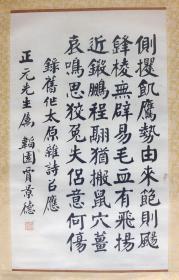 側攫飢鷹勢由來飽則颺
鋒稜無辟易毛血有飛揚
近鎩鵬程翮猶搬鼠穴薑
哀鳴思狡兔失侶意何傷
錄舊作太原雜詩㠯應
正元先生屬 韜園賈景德